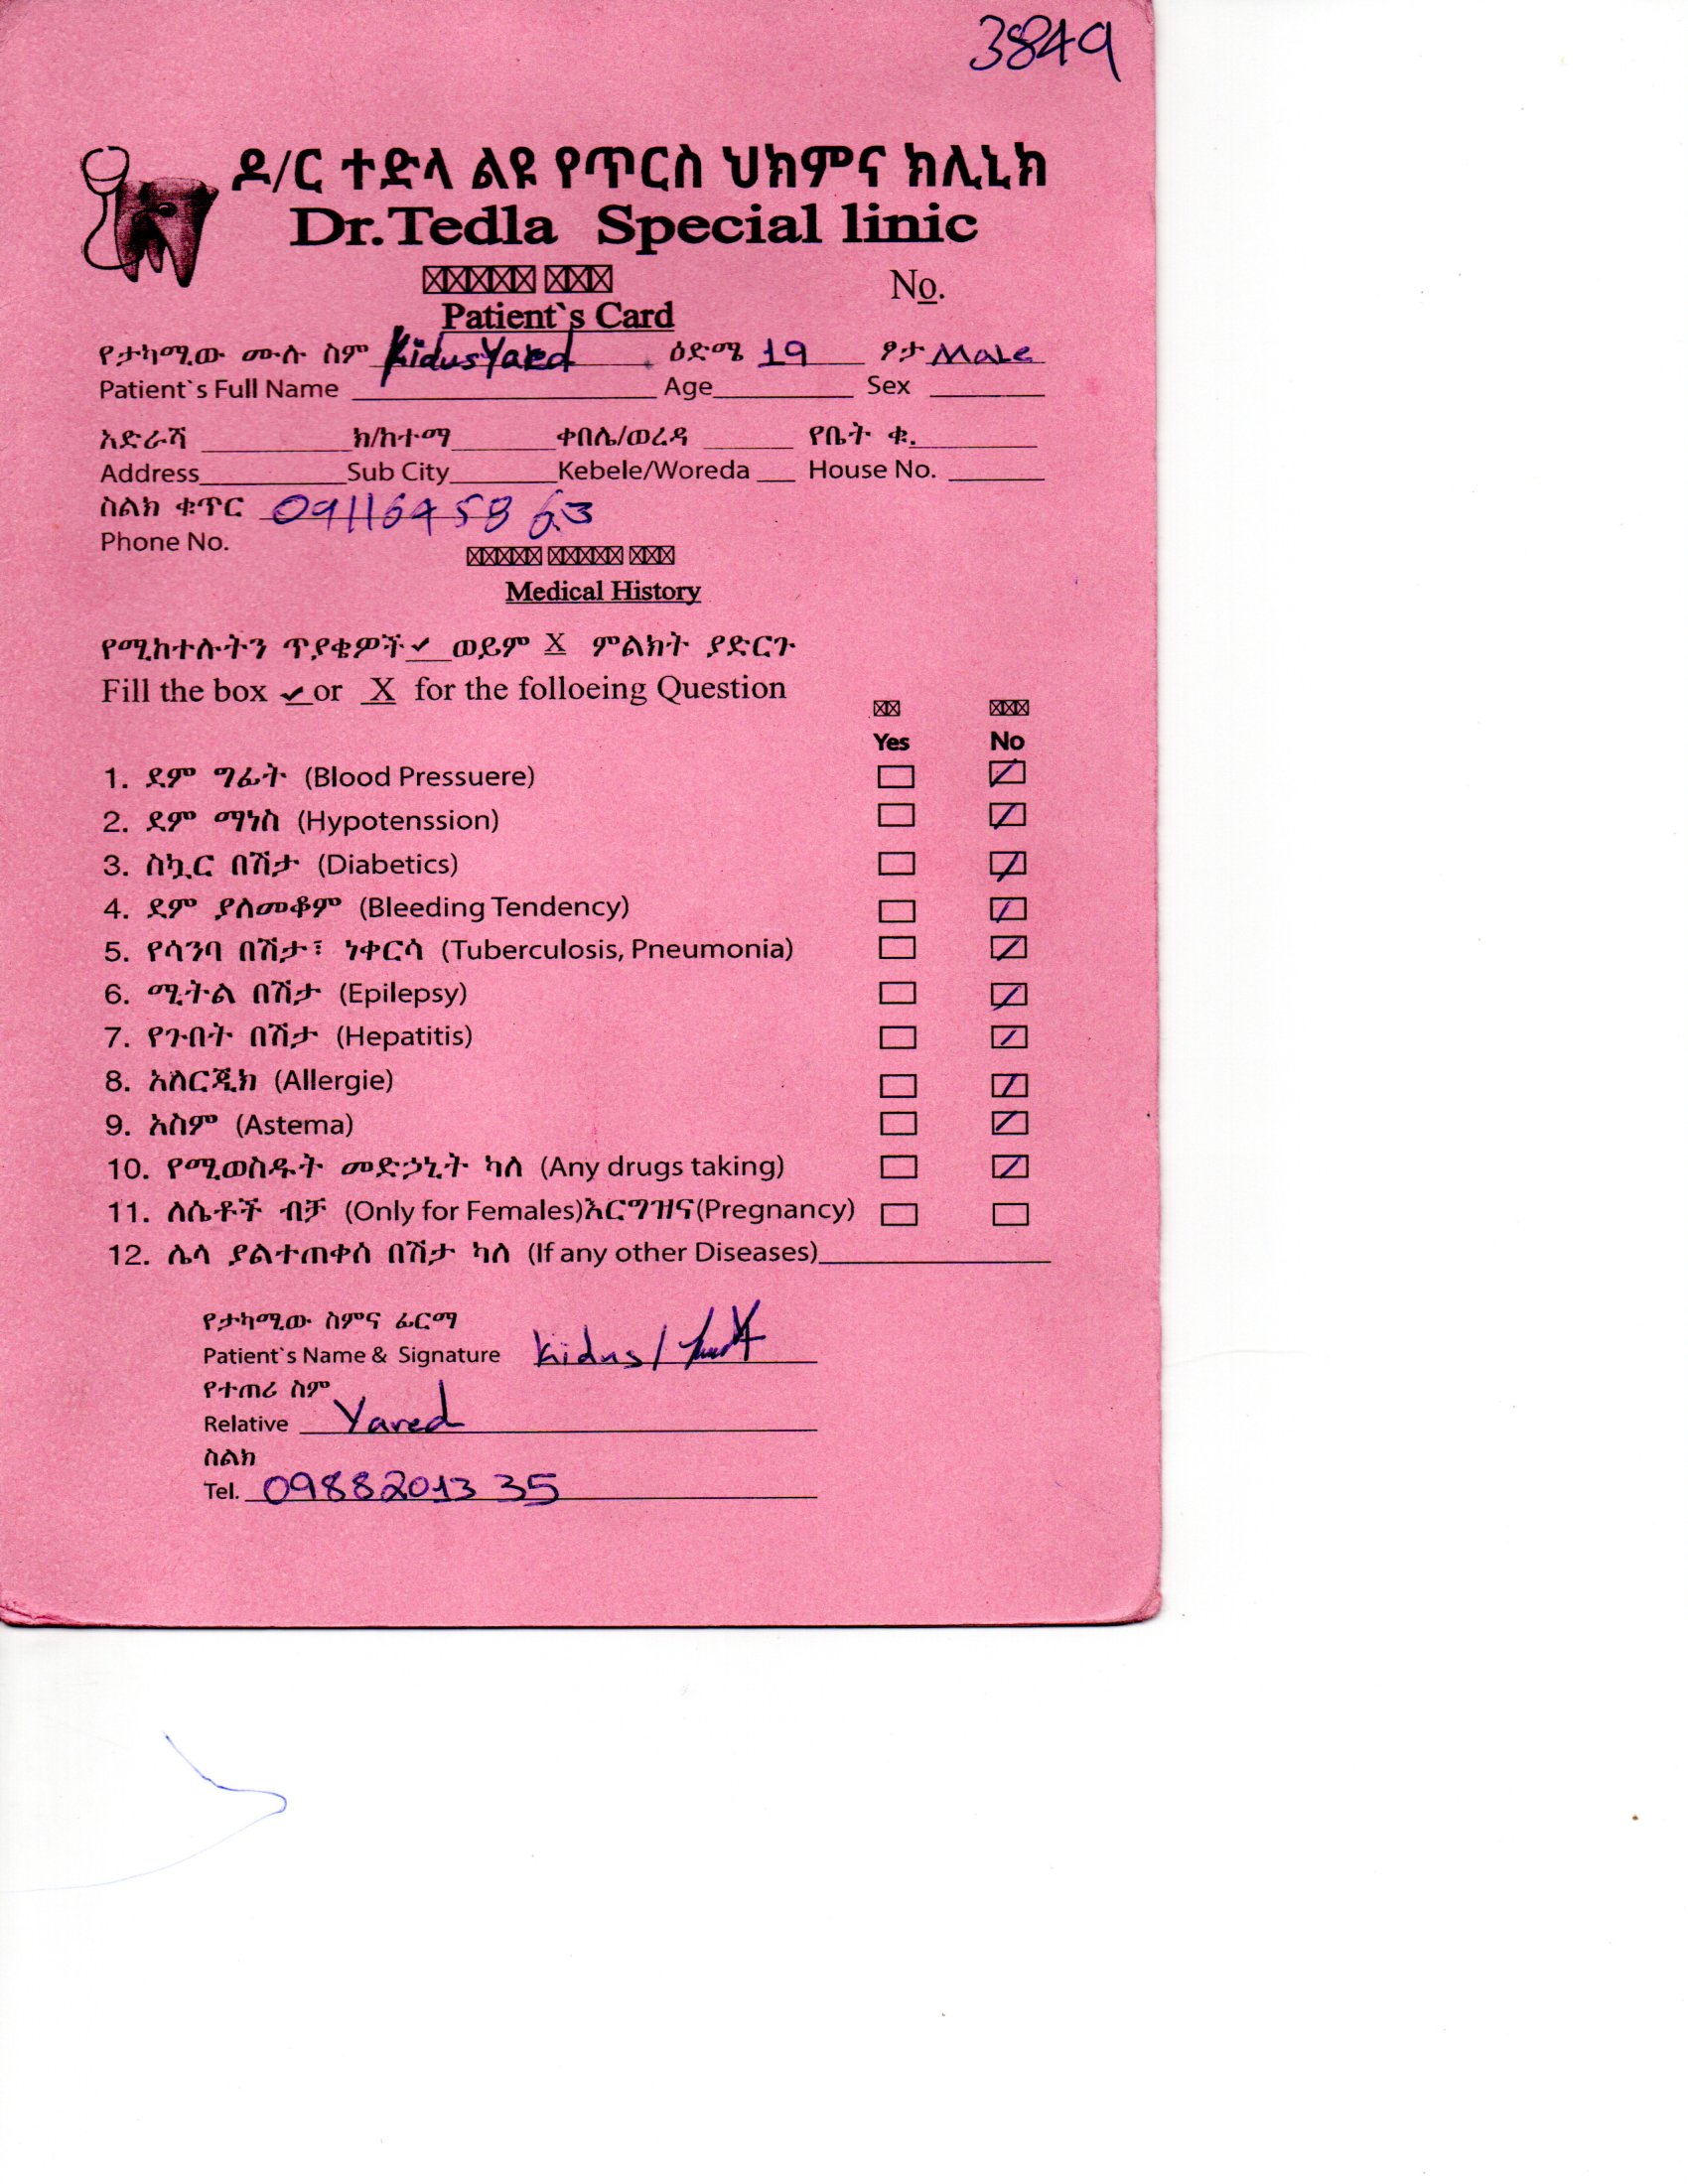 3849
ዶ/ር ተድላ ልዩ የጥርስ ህክምና ክሊኒክ
Dr.Tedla Special linic
No.
Patient`s Card
የታካሚው ሙሉ ስም Kidus Yared ዕድሜ 19 ፆታ Male
Patient`s Full Name Age Sex
አድራሻ ክ/ከተማ ቀበሌ/ወረዳ የቤት ቁ.
Address Sub City Kebele/Woreda House No.
ስልክ ቁጥር
Phone No.
Medical History
የሚከተሉትን ጥያቄዎች ✓ ወይም X ምልክት ያድርጉ
Fill the box ✓ or X for the folloeing Question
Yes No
1. ደም ግፊት (Blood Pressuere)
2. ደም ማነስ (Hypotenssion)
3. ስኳር በሽታ (Diabetics)
4. ደም ያለመቆም (Bleeding Tendency)
5. የሳንባ በሽታ፣ ነቀርሳ (Tuberculosis, Pneumonia)
6. ሚትል በሽታ (Epilepsy)
7. የጉበት በሽታ (Hepatitis)
8. አለርጂክ (Allergie)
9. አስም (Astema)
10. የሚወስዱት መድኃኒት ካለ (Any drugs taking)
11. ለሴቶች ብቻ (Only for Females)እርግዝና(Pregnancy)
12. ሌላ ያልተጠቀሰ በሽታ ካለ (If any other Diseases)
የታካሚው ስምና ፊርማ
Patient`s Name & Signature Kidus /
የተጠሪ ስም
Relative Yared
ስልክ
Tel. 0988201335